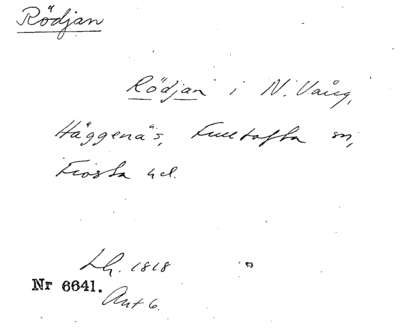 Rödjan
Rödjan i N. Vång,
Häggenäs, Fulltofta sn,
Frosta hd.
Lh. 1818
Nr 6641.
Ant 6.